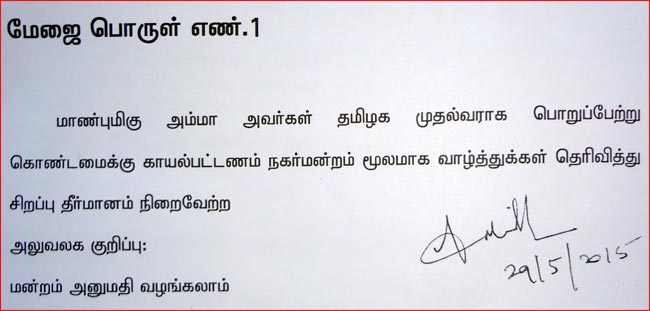 மேஜை பொருள் எண்.1
மாண்புமிகு அம்மா அவர்கள் தமிழக முதல்வராக பொறுப்பேற்று
கொண்டமைக்கு காயல்பட்டணம் நகர்மன்றம் மூலமாக வாழ்த்துக்கள் தெரிவித்து
சிறப்பு தீர்மானம் நிறைவேற்ற
அலுவலக குறிப்பு:
மன்றம் அனுமதி வழங்கலாம்
29/5/2015